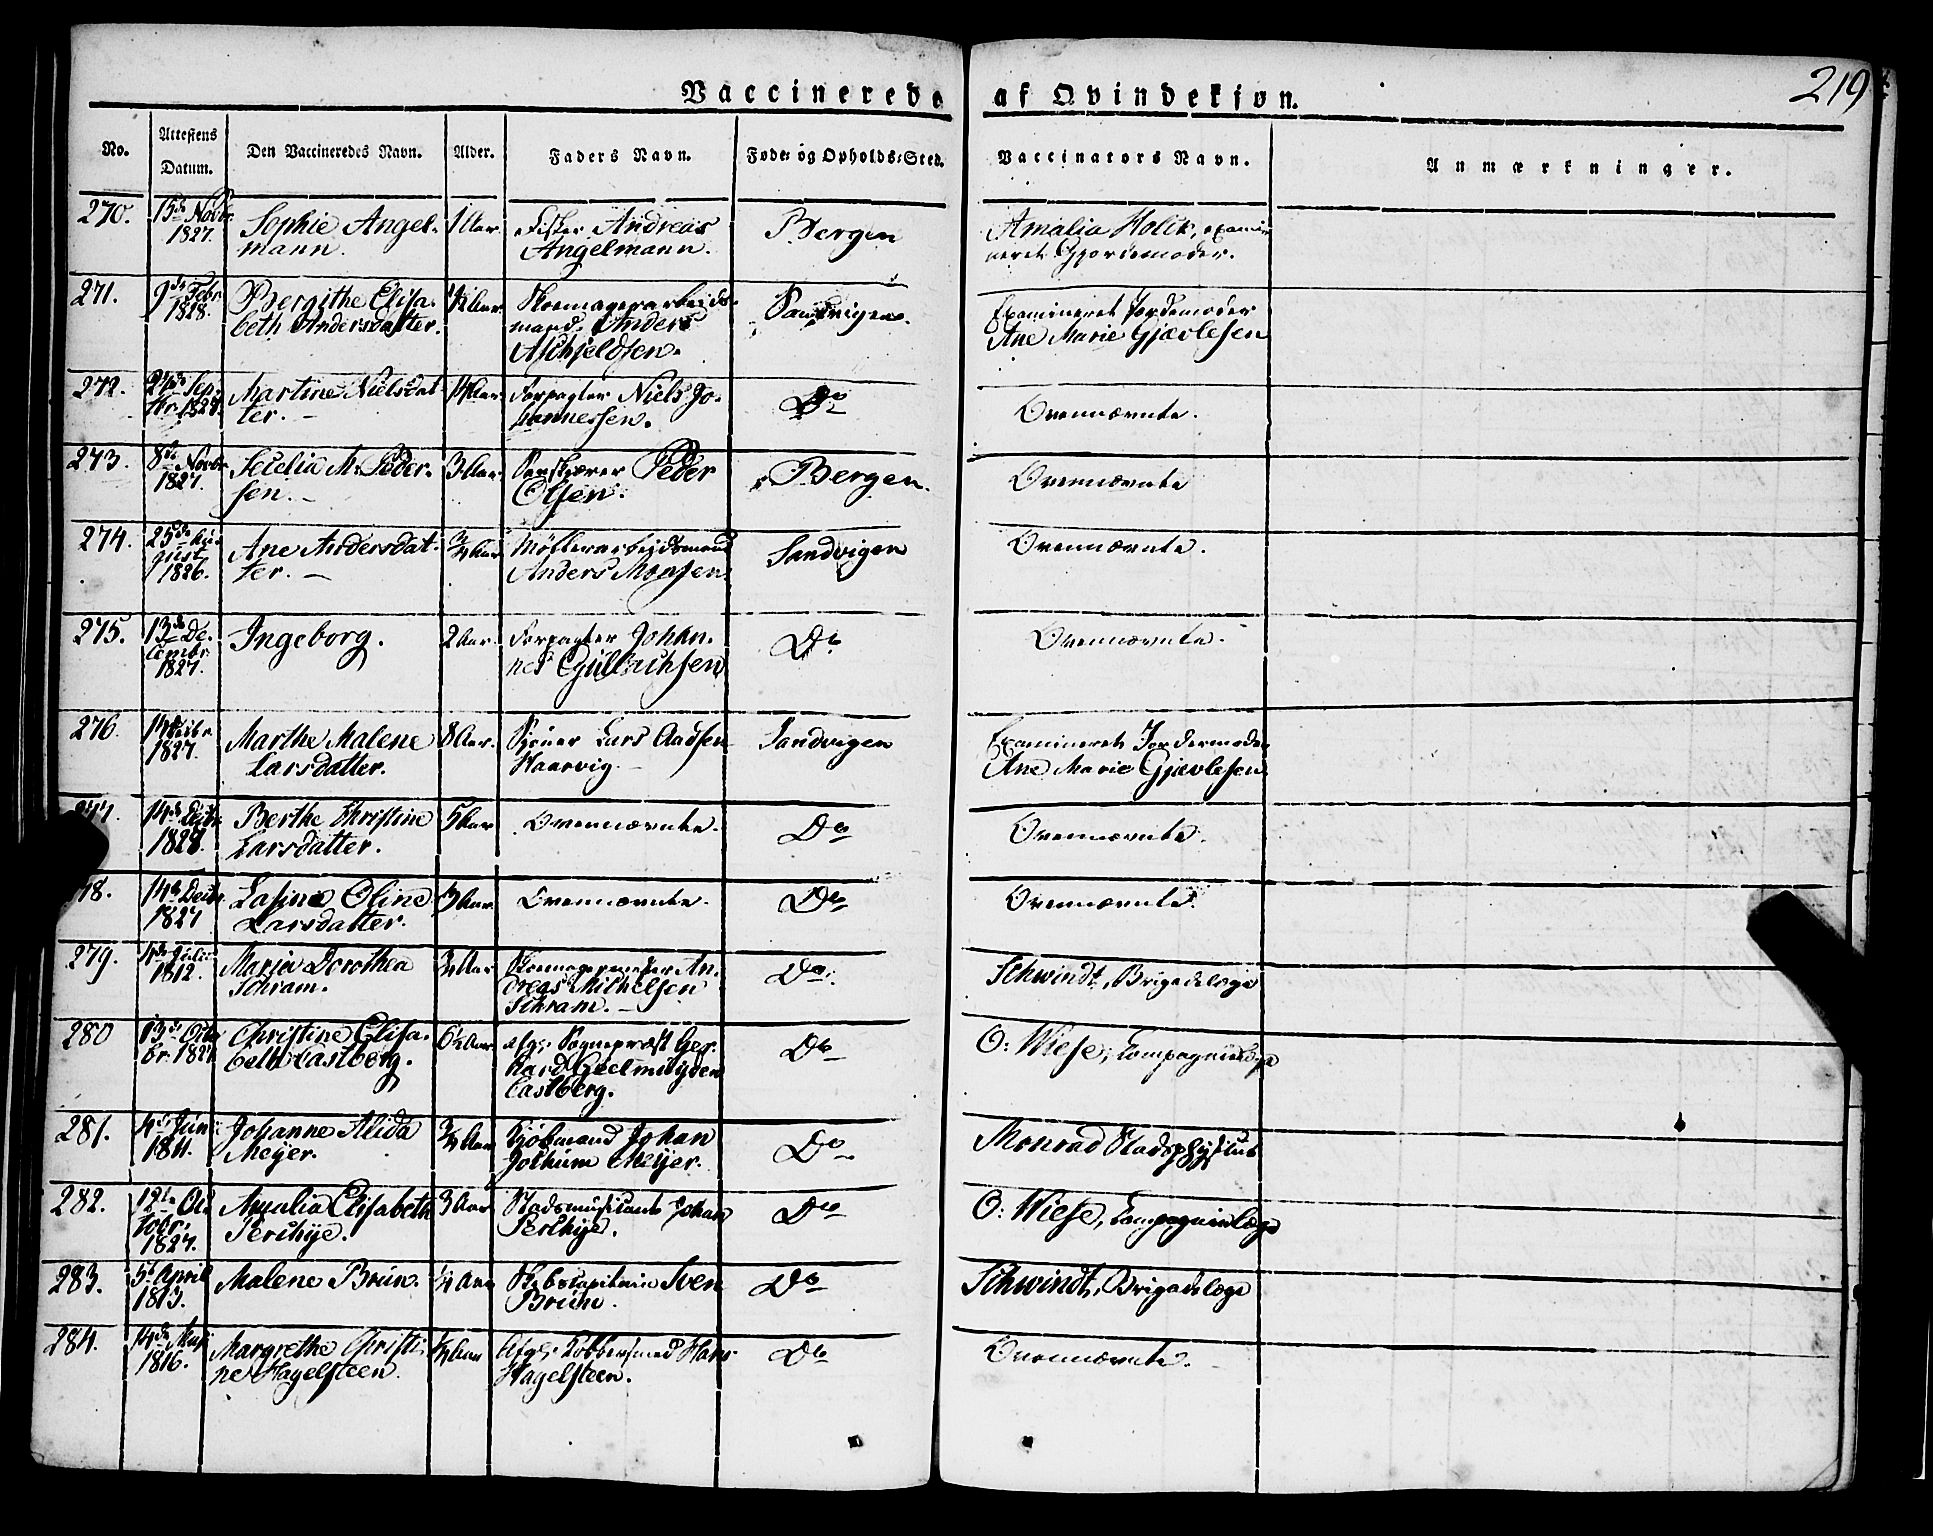 219
Vaccinerede af Qvindekjøn.
No. Attestens Datum. Den Vaccineredes Navn. Alder. Faders Navn. Føde- og Opholds-Sted. Vaccinators Navn. Anmærkninger.
270. 15de Novbr 1827. Sophie Angelmann. 1 Aar. Andreas Angelmann. Bergen Amalia Holck, examineret Gjordemoder.
271. 9de Febr 1828. Bergithe Elisabeth Andersdatter. ½ Aar. Skomagerarbeidsmand Anders Aschjeldsen. Sandvigen. Examineret Jordemoder Ane Marie Gjævlesen
272. Sep. 1827. Martine Nielsdatter. Aar. Forpagter Niels Johannessen. Do Ovennævnte.
273. 8de Novbr 1827. Secelia M. Pedersen. 3 Aar. Peder Olsen. Bergen. Ovennævnte
274. 25de August 1826. Ane Andersdatter. ¾ Aar Møllerarbeidsmand Anders Monsen. Sandvigen Ovennævnte.
275. 13de December 1827. Ingeborg. 2 Aar. Forpagter Johannes Gullachsen Do Ovennævnte.
276. 14de Decbr 1827. Marthe Malene Larsdatter. 8 Aar. Lars Aadsen Haarvig. Sandvigen Examineret Jordemoder Ane Marie Gjævlesen
277. 14de Decbr 1827. Berthe Christine Larsdatter. 5 Aar Ovennævnte. Do Ovennævnte.
278. 14de Decbr 1827 Lasine Oline Larsdatter. 3 Aar Ovennævnte. Do Ovennævnte.
279. 1812. Maria Dorothea Schram. ¾ Aar Skomagermester Andreas Michelsen Schram. Do Schwindt, Brigadelæge
280 13de Octobr. 1827 Christine Elisabeth Castberg. 6½ Aar afg: Sogneprest Gerhard Geelmuyden Castberg. Do O: Wiese, Compagnielæge
281. 4de Juni 1811. Johanne Alida Meyer. ¾ Aar Kjøbmand Johan Jochum Meyer. Do Monrad Stadsphysicus
282. 12te Octobr. 1827. Amalia Elisabeth Perchye. 3 Aar Stadsmusicant Johan Perchye. Do O: Wiese, Compagnielæge
283. 5te April 1813. Malene Bruun. ¼ Aar Skibscapitain Sven Bruun. Do Schwindt, Brigadelæge
284. 14de Maj 1816. Margrethe Christine Hagelsteen. Aar Afg: Kobbersmed Hans Hagelsteen. Do Ovennævnte.